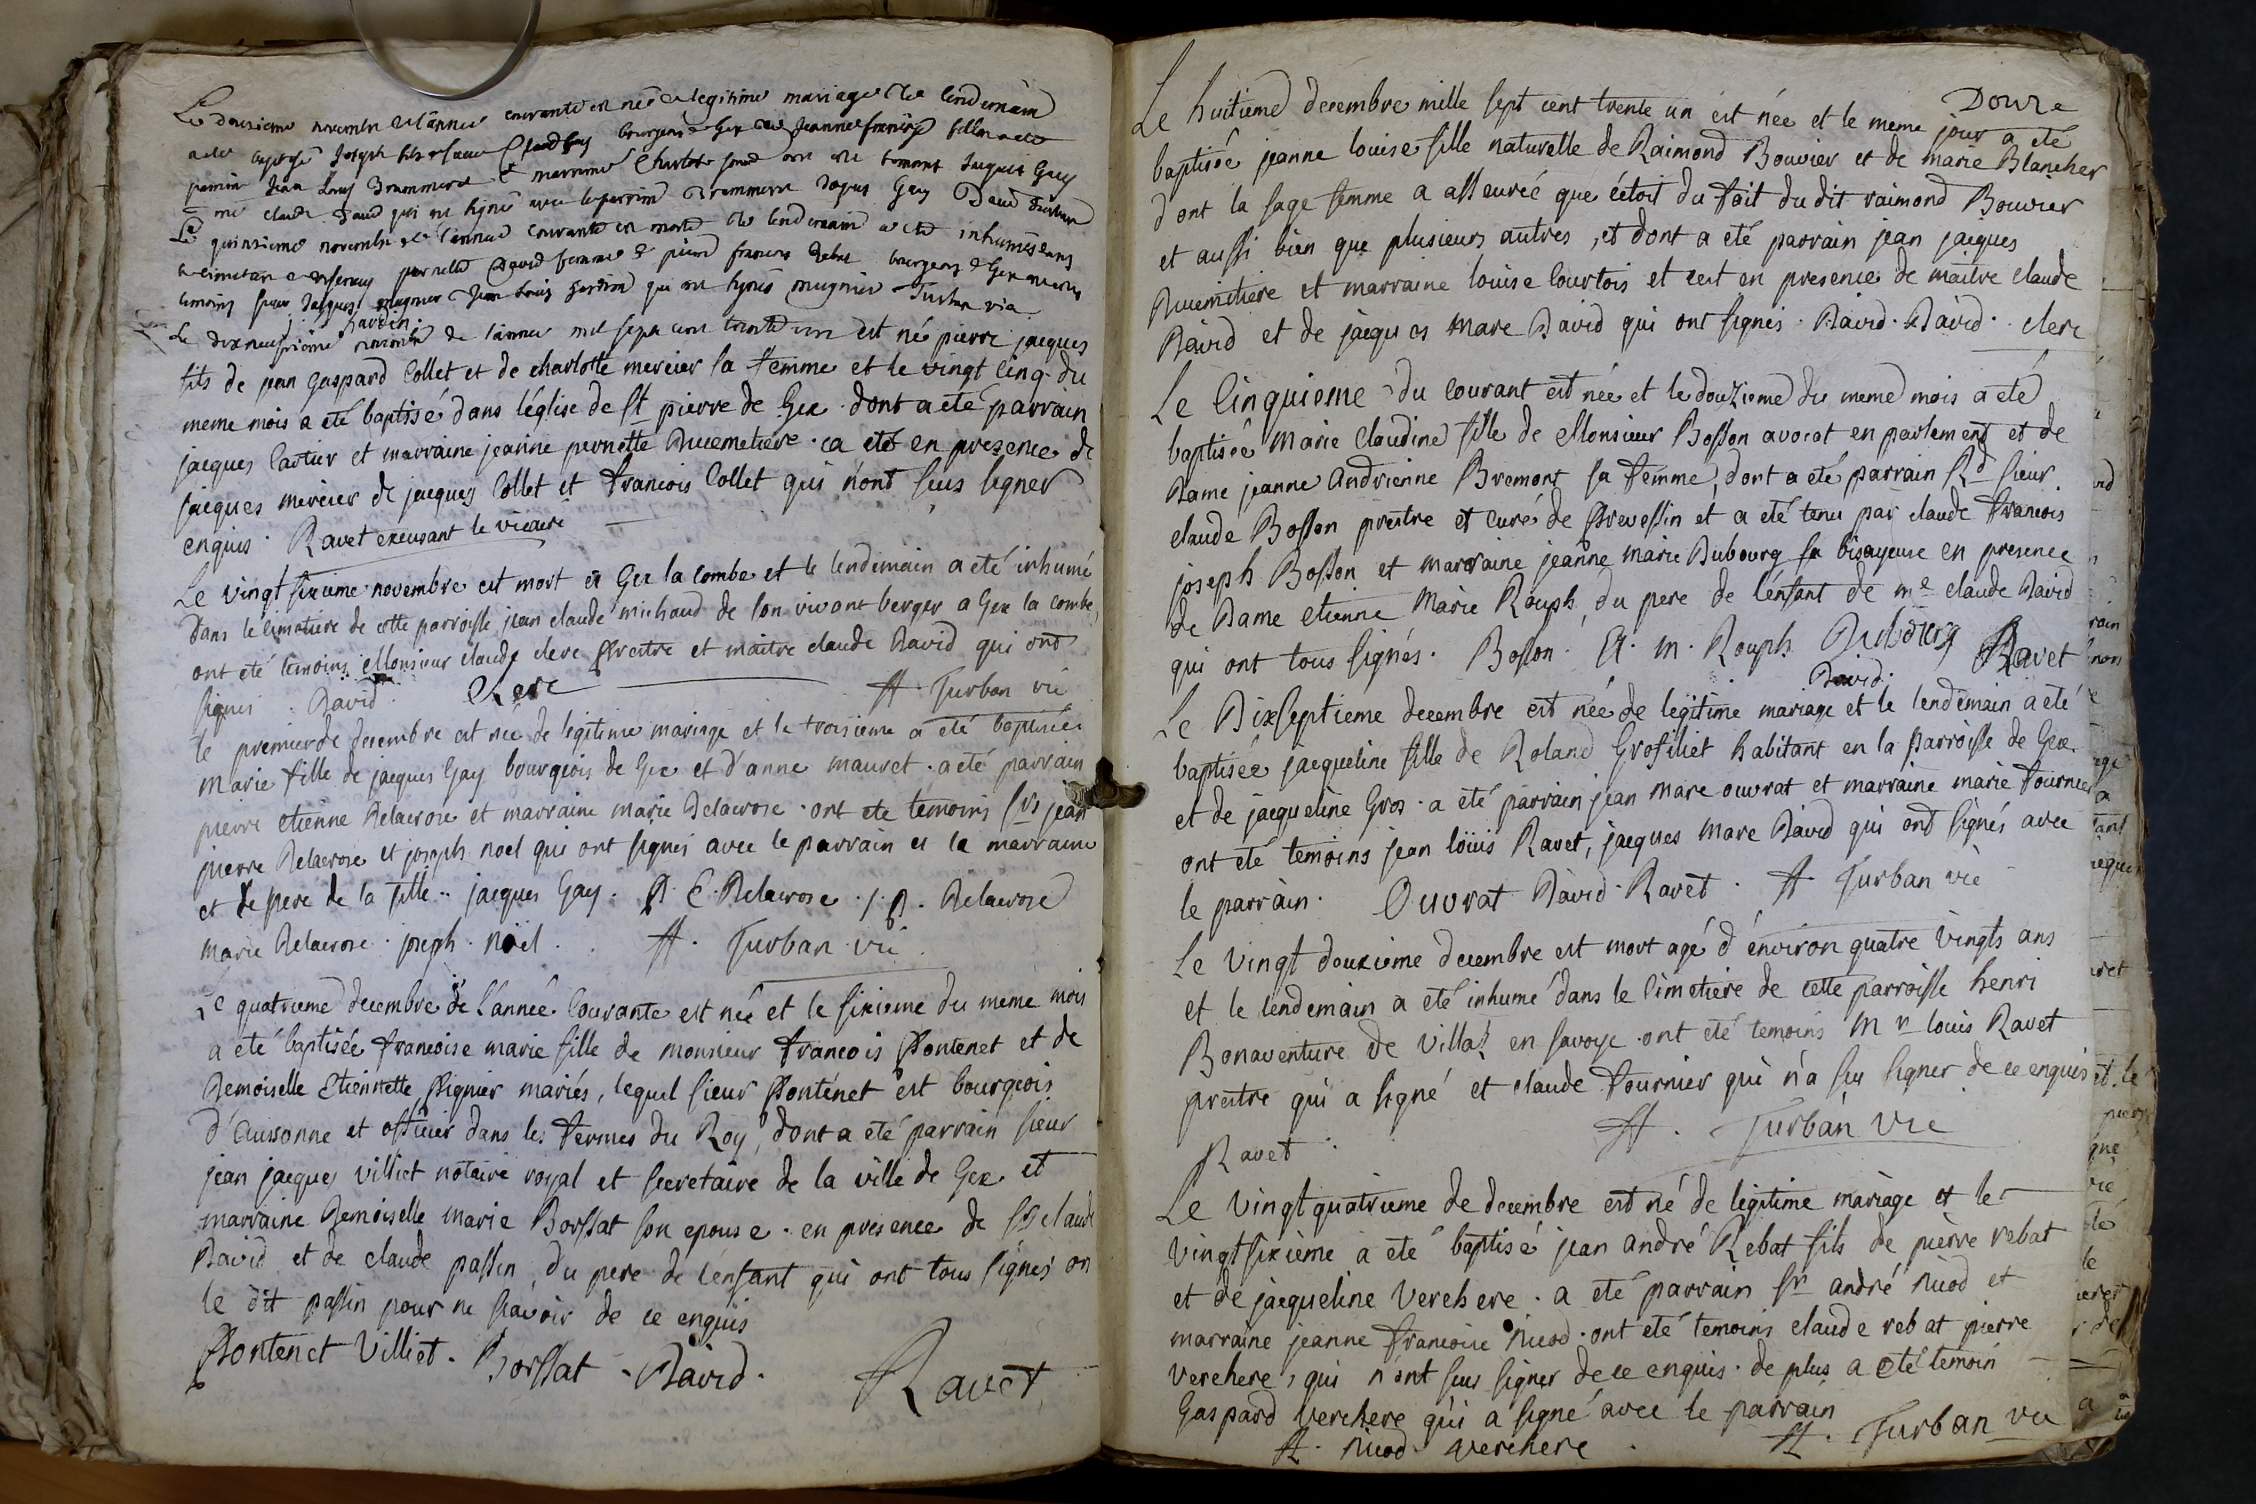 Le douzieme novembre de l'année courante est né de legitime mariage et le lendemain
a été baptisé Joseph fils de sieur Claude Gay bourgeois de Gex et de Jeanne
parrain Jean Louis et marraine Charlotte ont été temoins Jaques Gay
me claude David qui ont signé avec le parrain Gay David Turban
Le quinzieme novembre de l'année courante est morte et le lendemain a été inhumée dans
le cimetiere pernette David femme de pierre francois Rebat bourgeois de Gex
temoins sieur Jacques mugnier Jean Louis jardin qui ont signés mugnier Turban vic
jardin.
Le dixneufvieme novembre de l'année mil sept cent trente un est né pierre jacques
fils de jean gaspard Collet et de charlotte mercier sa femme et le vingt cinq du
meme mois a eté baptisé dans l'église de St pierre de Gex. dont a eté parrain
jacques Cartier et marraine jeanne pernette Ducemetiere. ca eté en presence de
jacques mercier de jacques Collet et francois Collet qui n'ont sçus signer
enquis. Ravet excusant le vicaire
Le vingt sixieme novembre est mort a Gex la combe et le lendemain a eté inhumé
dans le cimetiere de cette parroisse jean claude michaud de son vivant berger a Gex la combe,
ont eté temoins Monsieur claude clerc prestre et maitre claude David qui ont
signés. David. Clerc A. Turban vic
le premier de decembre est née de legitime mariage et le troisieme a eté baptisée
marie fille de jacques Gay bourgeois de Gex et d'anne mauret. a eté parrain
pierre etienne Delacrose et marraine marie Delacrose. ont ete temoins Srs jean
pierre Delacrose et joseph noel qui ont signés avec le parrain et la marraine
et de pere de la fille. jacques Gay. P. E. Delacrose. j. p. Delacrose
marie Delacrose. joseph. Noel. A. Turban vic.
Le quatrieme decembre de l'année. Courante est née et le sixieme du meme mois
a eté baptisée francoise marie fille de monsieur francois Pontenet et de
Demoiselle Etiennette Pignier mariés, lequel sieur Pontenet est bourgeois
d'aussonne et officier dans les fermes du Roy, dont a eté parrain sieur
jean jacques villiet notaire royal et secretaire de la ville de Gex et
marraine Demoiselle marie Borssat son epouse. en presence de Sr claude
David et de claude passin, du pere de l'enfant qui ont tous signés on
le dit passin pour ne sçavoir de ce enquis
Pontenet Villiet. Borssat. David. Ravet
Douze
Le huitieme decembre mille sept cent trente un est née et le meme jour a eté
baptisée jeanne louise fille naturelle de Raimond Bouvier et de marie Blancher
dont la sage femme a asseureé que cétoit du fait du dit raimond Bouvier
et aussi bien que plusieurs autres, et dont a eté parrain jean jacques
Ducemetiere et marraine louise Courtois et cest en presence de maitre claude
David et de jacques marc David qui ont signés. David. David. clerc
Le Cinquieme du courant est née et le douzieme du meme mois a eté
baptisée marie Claudine fille de Monsieur Bosson avocat en parlement et de
Dame jeanne Andrienne Bremont sa femme, dont a eté parrain Rd sieur
claude Bosson prestre et curé de Prevessin et a eté tenu par claude francois
joseph Bosson et marraine jeanne marie Dubourg sa bisayeuse en presence
de Dame etienne Marie Rouph, du pere de l'énfant de me claude David
qui ont tous signés. Bosson. Et. m. Rouph Dubourg Ravet
David.
Le Dixseptieme decembre est née de legitime mariage et le lendemain a eté
baptisée jacqueline fille de Roland Grosiliet habitant en la parroisse de Gex.
et de jacqueline Gros. a eté parrain jean marc ouvrat et marraine marie fournier
ont eté temoins jean louis Ravet, jacques marc David qui ont signés avec
le parrain. Ouvrat David. Ravet. A Turban vic
Le vingt deuxieme decembre est mort agé d'environ quatre vingts ans
et le lendemain a eté inhumé dans le Cimetiere de cette parroisse henri
Bonaventure de villa en savoye. ont eté temoins Mr louis Ravet
prestre qui a signé et claude fournier qui n'a sçu signer de ce enquis
A. Turban vic
Ravet
Le vingtquatrieme de decembre est né de legitime mariage et le
vingtsixieme a eté baptisé jean andré Rebat fils de pierre rebat
et de jacqueline Verchere. a eté parrain Sr andré Nicod et
marraine jeanne francoise Nicod. ont eté temoins claude rebat pierre
verchere, qui n'ont sçus signer de ce enquis. de plus a eté temoin
Gaspard verchere qui a signé avec le parrain
A. Nicod. verchere. A. Turban vic